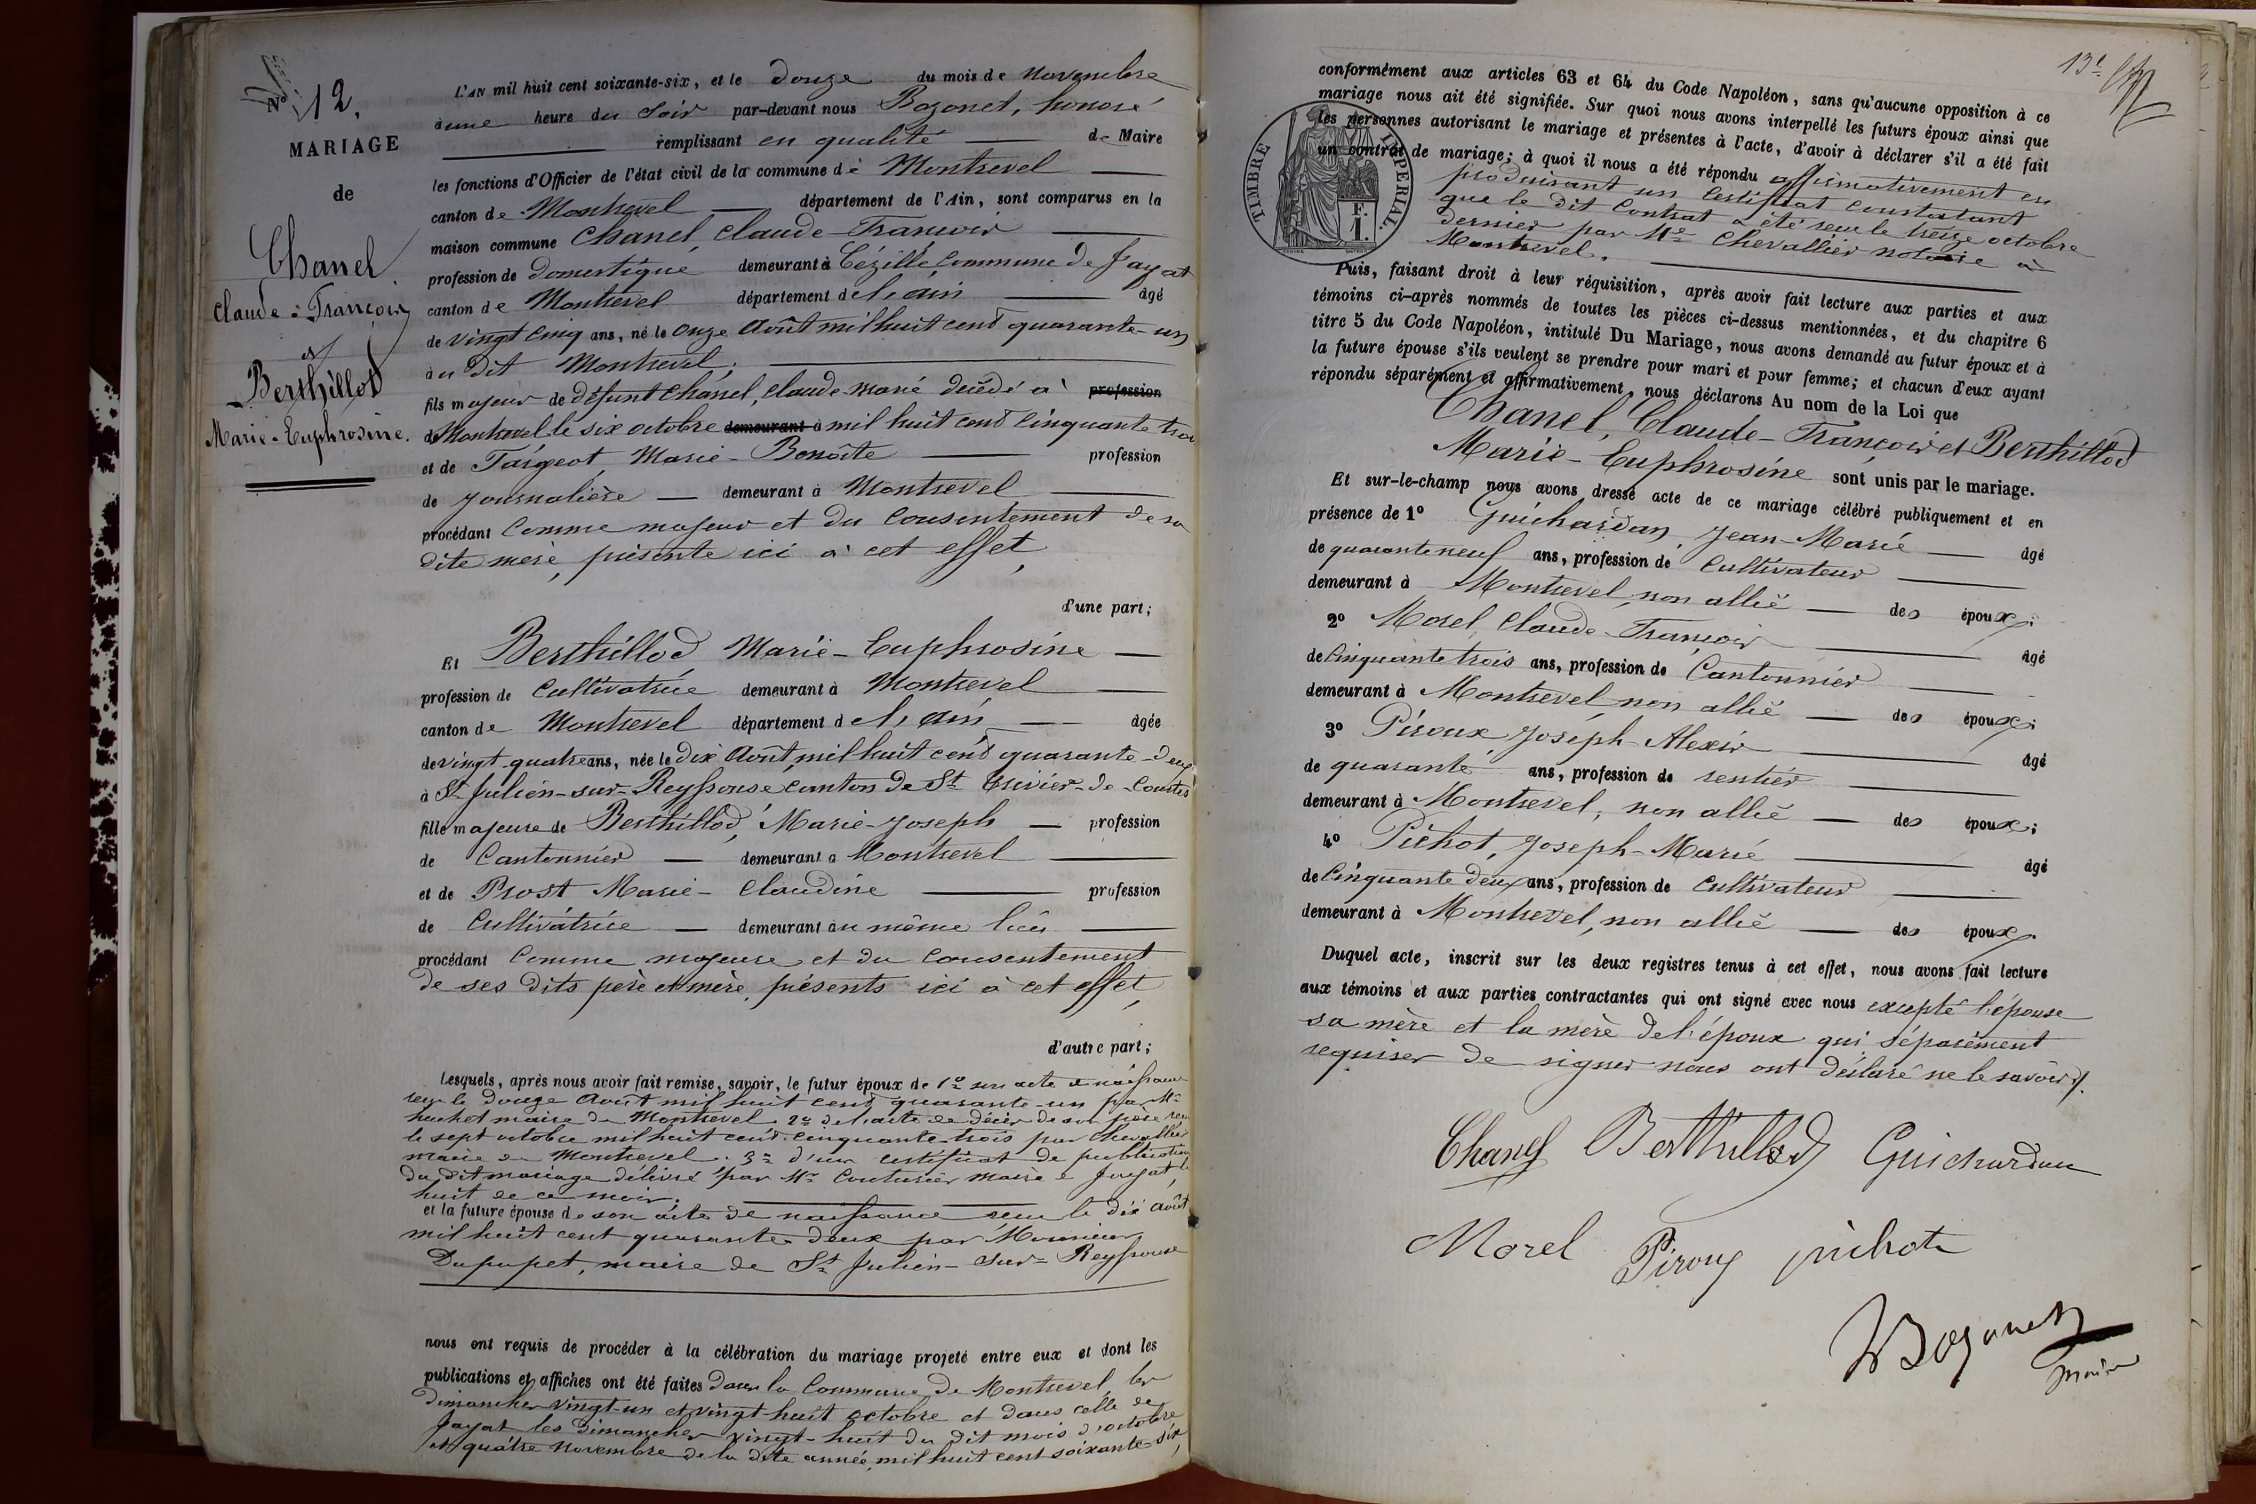 N° 12.
MARIAGE
de
Chanel
Claude-François
et
Berthillod
Marie-Euphrosine.
L'AN mil huit cent soixante-six, et le douze du mois de novembre
à une heure du soir par-devant nous Bozonet, honoré
remplissant en qualité de Maire
les fonctions d'Officier de l'état civil de la commune de Montrevel
canton de Montrevel département de l'Ain, sont comparus en la
maison commune Chanel, Claude-François
profession de domestique demeurant à Cézille, commune de Jayat
canton de Montrevel département de l'ain âgé
de vingt cinq ans, né le onze août mil huit cent quarante-un
au dit Montrevel,
fils majeur de défunt Chanel, Claude-marie décédé à profession
de Montrevel le six octobre demeurant à mil huit cent cinquante trois
et de Targeot, Marie-Benoîte profession
de journalière demeurant à Montrevel
procédant comme majeur et du consentement de sa
dite mère, présente ici à cet effet,
d'une part;
Et Berthillod Marie-Euphrosine
profession de cultivatrice demeurant à Montrevel
canton de Montrevel département de l'ain âgée
de vingt-quatre ans, née le dix août mil huit cent quarante-deux
à St Julien-sur-Reyssouse canton de St Trivier-de-Courtes
fille majeure de Berthillod, Marie-Joseph profession
de cantonnier demeurant à Montrevel
et de Prost Marie-Claudine profession
de cultivatrice demeurant au même lieu
procédant comme majeure et du consentement
de ses dits père et mère, présents ici à cet effet,
d'autre part;
Lesquels, après nous avoir fait remise, savoir, le futur époux de 1° son acte de naissance
reçu le douze août mil huit cent quarante-un par Mr
huchet maire de Montrevel 2° de l'acte de décès de son père reçu
le sept octobre mil huit cent cinquante-trois par Chevallier
maire de Montrevel. 3° d'un certificat de publication
du dit mariage délivré par Mr Couturier maire de Jayat, le
huit de ce mois.
et la future épouse de son acte de naissance reçu le dix août
mil huit cent quarante-deux par Mounier
Dupupet, maire de St Julien-sur-Reyssouse
nous ont requis de procéder à la célébration du mariage projeté entre eux et dont les
publications et affiches ont été faites dans la commune de Montrevel, les
dimanches vingt-un et vingt-huit octobre et dans celle de
Jayat les dimanches vingt-huit du dit mois d'octobre
et quatre novembre de la dite année, mil huit cent soixante-six,
13e
conformément aux articles 63 et 64 du Code Napoléon, sans qu'aucune opposition à ce
mariage nous ait été signifiée. Sur quoi nous avons interpellé les futurs époux ainsi que
les personnes autorisant le mariage et présentes à l'acte, d'avoir à déclarer s'il a été fait
un contrat de mariage; à quoi il nous a été répondu affirmativement en
produisant un certificat constatant
que le dit contrat a été reçu le treize octobre
dernier par Me Chevallier notaire à
Montrevel.
TIMBRE IMPERIAL.
F.
1.
Puis, faisant droit à leur réquisition, après avoir fait lecture aux parties et aux
témoins ci-après nommés de toutes les pièces ci-dessus mentionnées, et du chapitre 6
titre 5 du Code Napoléon, intitulé Du Mariage, nous avons demandé au futur époux et à
la future épouse s'ils veulent se prendre pour mari et pour femme; et chacun d'eux ayant
répondu séparément et affirmativement, nous déclarons Au nom de la Loi que
Chanel, Claude-François et Berthillod
Marie-Euphrosine sont unis par le mariage.
Et sur-le-champ nous avons dressé acte de ce mariage célébré publiquement et en
présence de 1° Guichardan, Jean-Marie âgé
de quarante neuf ans, profession de cultivateur
demeurant à Montrevel, non allié des époux;
2° Morel, Claude-François âgé
de cinquante trois ans, profession de cantonnier
demeurant à Montrevel, non allié des époux;
3° Piroux Joseph-Alexis âgé
de quarante ans, profession de rentier
demeurant à Montrevel, non allié des époux;
4° Pichot, Joseph-Marie âgé
de cinquante deux ans, profession de cultivateur
demeurant à Montrevel, non allié des époux.
Duquel acte, inscrit sur les deux registres tenus à cet effet, nous avons fait lecture
aux témoins et aux parties contractantes qui ont signé avec nous excepté l'épouse
sa mère et la mère de l'époux qui séparément
requises de signer nous ont déclaré ne le savoir.
Chanel Berthillod Guichardan
Morel Piroux pichot
Bozonet
maire